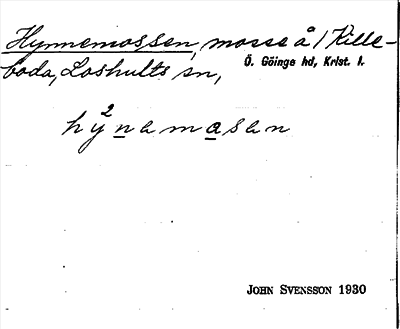 Hynnemossen, mosse å 1 Kille-
boda, Loshults sn, Ö. Göinge hd, Krist. l.
hy²nemasen
JOHN SVENSSON 1930